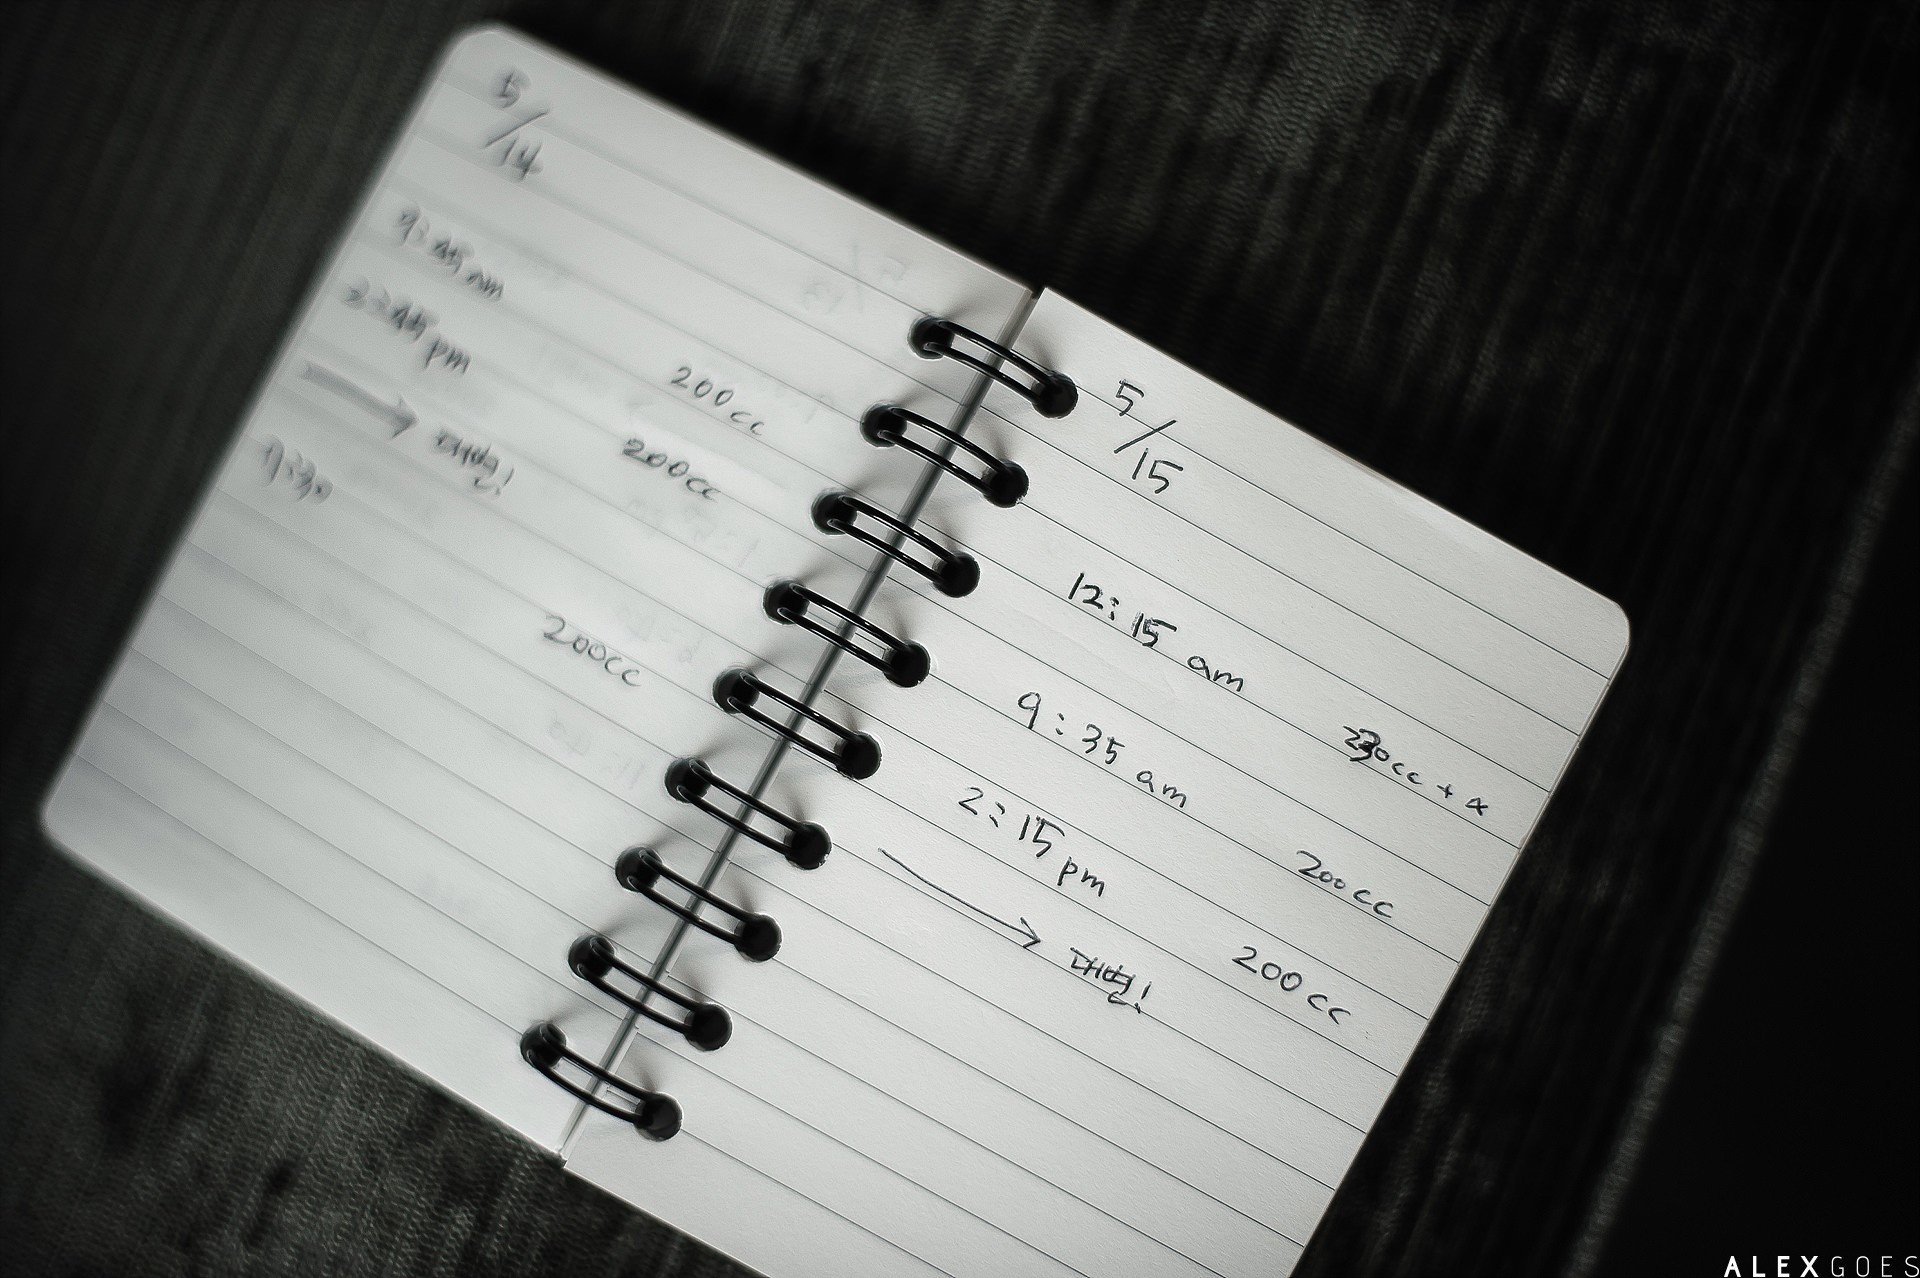 5/14
9:45 am 200cc
2:45 pm 200cc
→ 대변!
9:30 200cc
5/15
12:15 am 230cc + α
9:35 am 200cc
2:15 pm 200cc
→ 대변!
ALEXGOES